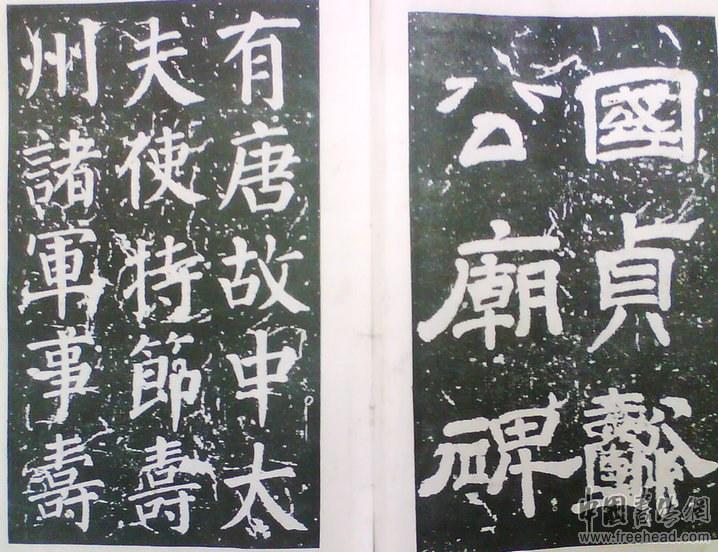 國貞懿
公廟碑
有唐故中大
夫使持節壽
州諸軍事壽
中国书法網
www.freehead.com